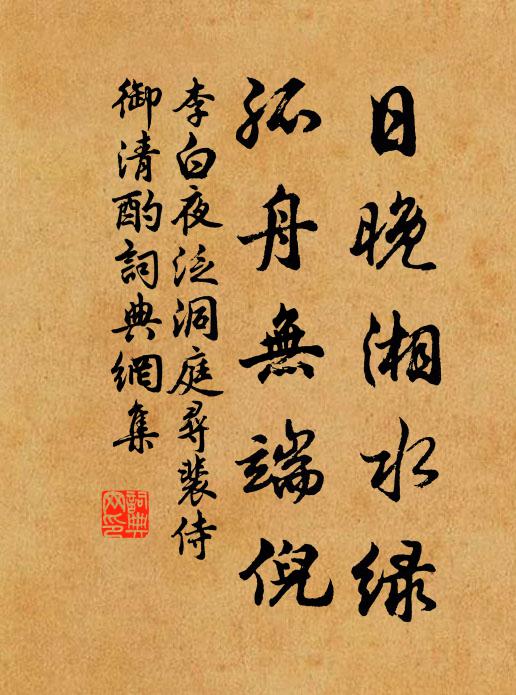 日晚湘水绿
孤舟無端倪
李白夜泛洞庭尋裴侍
御清酌詞典網集